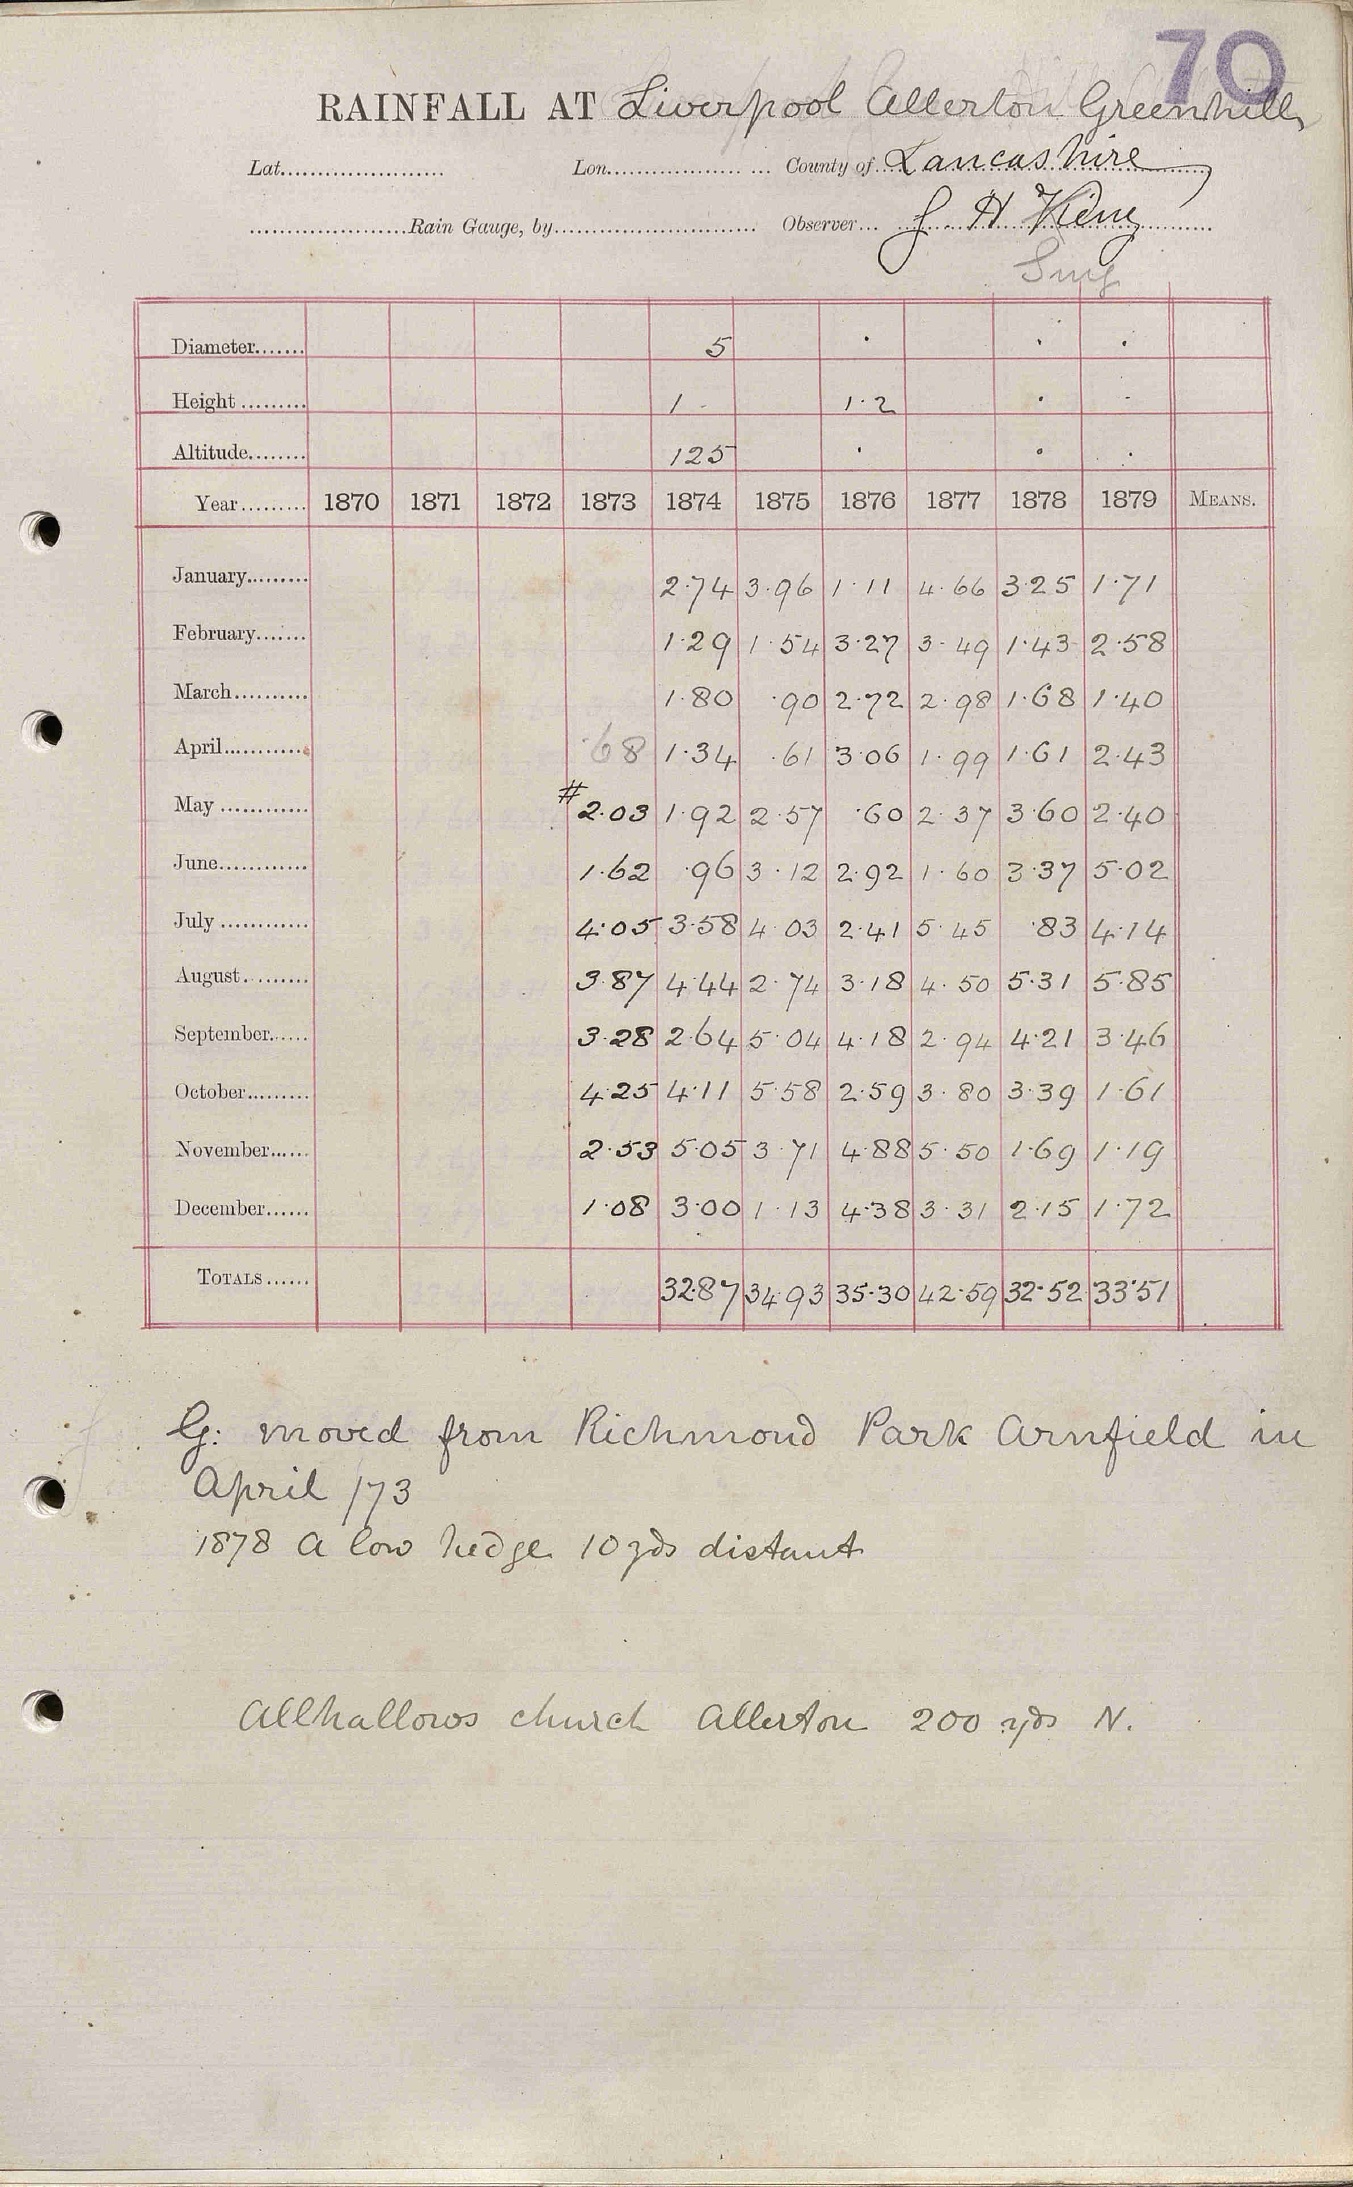 70
RAINFALL AT Liverpool Allerton Greenhill
Lat...................... Lon.................. ... County of...Lancashire
.....................Rain Gauge, by........................... Observer... J. H. King
Diameter....... 5 · · ·
Height ......... 1 - 1·2 · ·
Altitude........ 125 · · ·
Year......... 1870 1871 1872 1873 1874 1875 1876 1877 1878 1879 MEANS.
January......... 2·74 3·96 1·11 4·66 3·25 1·71
February....... 1·29 1·54 3·27 3·49 1·43 2·58
March.......... 1·80 ·90 2·72 2·98 1·68 1·40
April............ ·68 1·34 ·61 3·06 1·99 1·61 2·43
May ............ # 2·03 1·92 2·57 ·60 2·37 3·60 2·40
June............ 1·62 ·96 3·12 2·92 1·60 3·37 5·02
July ............ 4·05 3·58 4·03 2·41 5·45 ·83 4·14
August......... 3·87 4·44 2·74 3·18 4·50 5·31 5·85
September...... 3·28 2·64 5·04 4·18 2·94 4·21 3·46
October......... 4·25 4·11 5·58 2·59 3·80 3·39 1·61
November...... 2·53 5·05 3·71 4·88 5·50 1·69 1·19
December...... 1·08 3·00 1·13 4·38 3·31 2·15 1·72
TOTALS...... 32·87 34·93 35·30 42·59 32·52 33·51
G: moved from Richmond Park Arnfield in
April /73
1878 A low hedge 10 yds distant
Allhallows church Allerton 200 yds N.